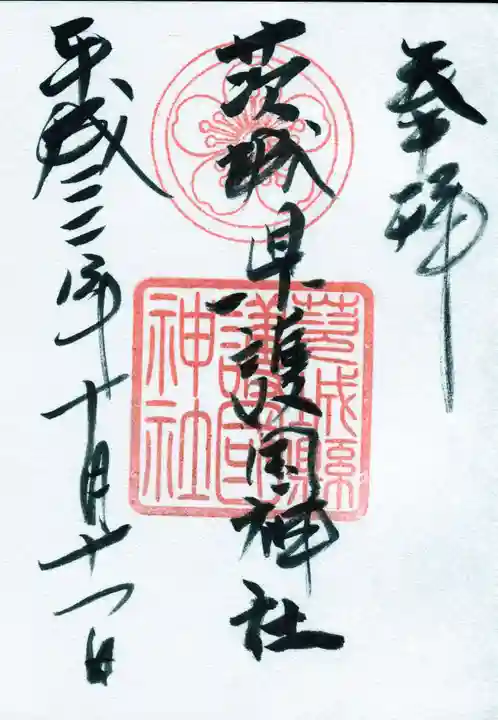 参拝
茨城県護国神社
平成二三年十月十一日
茨城縣
護國
神社